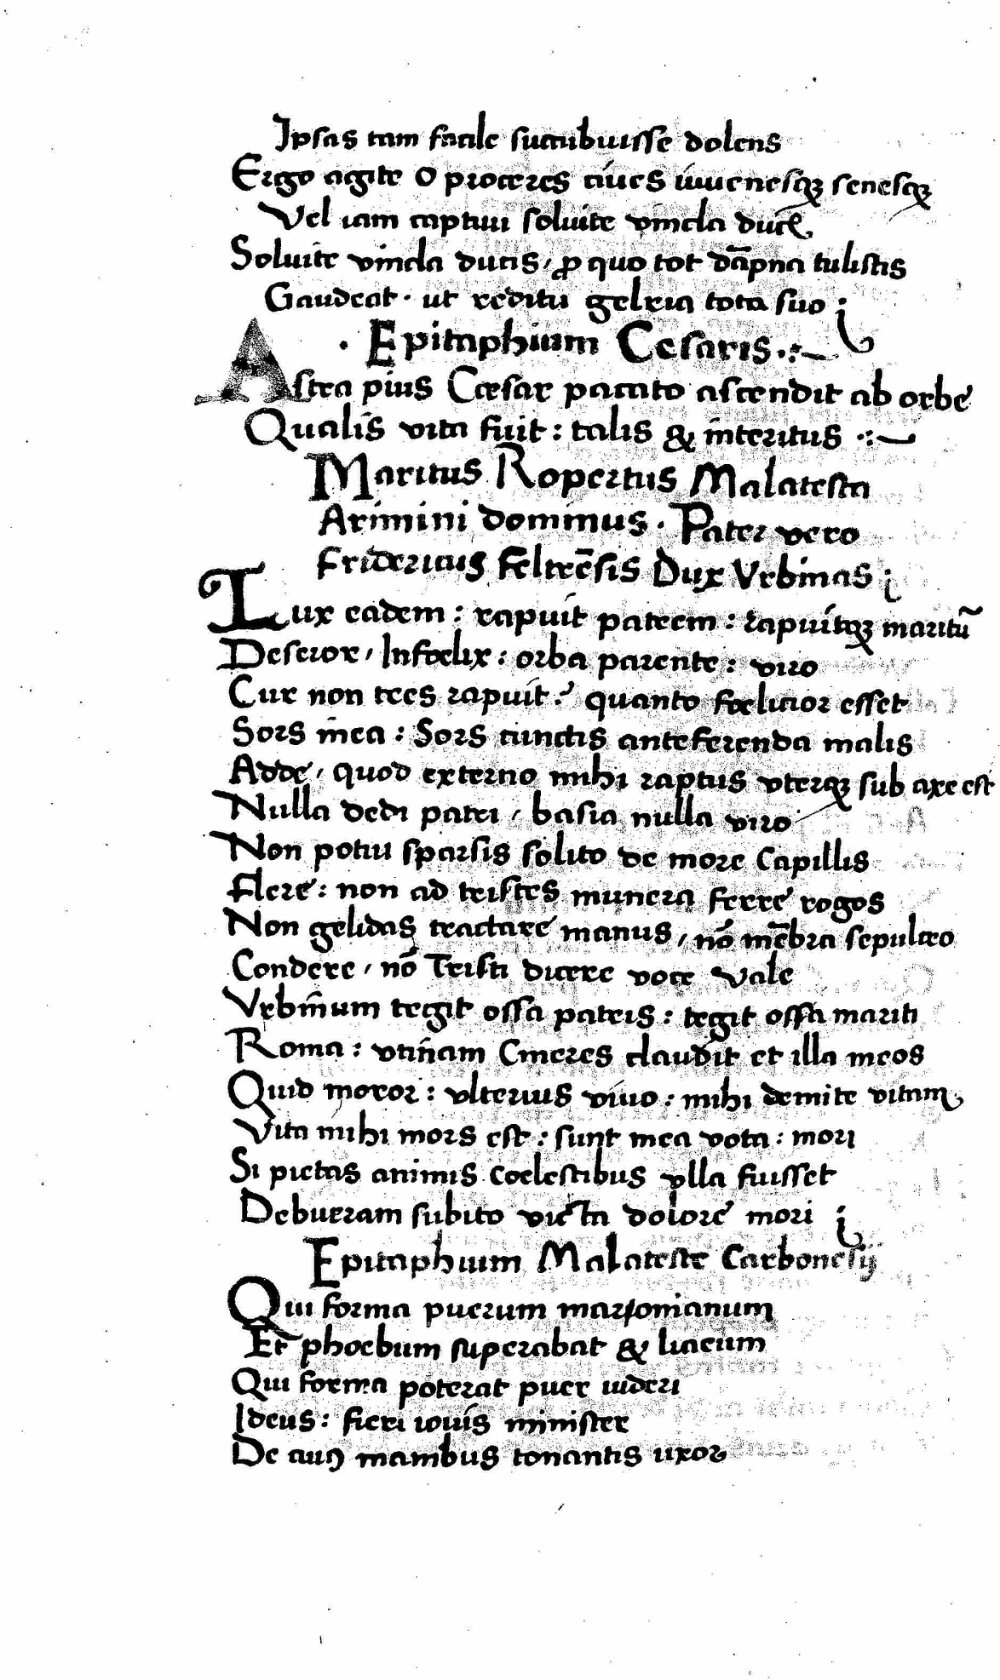 Ipsas tam facile sucubuisse dolens
Ergo agite O proceres ciues iuuenesqꝫ senesqꝫ
Vel iam captiui soluite vincla ducis
Soluite vincla ducis / ꝓ quo tot dāpna tulistis
Gaudeat · ut reditu gelria tota suo
· Epitaphium Cesaris ·:~
Astra pius Cæsar pacato ascendit ab orbe
Qualis vita fuit : talis & interitus ·:~
Maritus Ropertus Malatesta
Arimini dominus · Pater vero
Fridericus Feltrēsis Dux Vrbinas
Lux eadem : rapuit patrem : rapuitqꝫ maritū
Deseror / Infoelix : orba parente : viro
Cur non tres rapuit ? quanto foelicior esset
Sors mea : Sors cunctis anteferenda malis
Adde / quod externo mihi raptus vterqꝫ sub axe est
Nulla dedi patri / basia nulla viro
Non potui sparsis solito de more Capillis
Flere : non ad tristes munera ferre rogos
Non gelidas tractare manus / nō mēbra sepulcro
Condere / nō Tristi dicere voce vale
Vrbinum tegit ossa patris : tegit ossa mariti
Roma : vtinam Cineres claudit et illa meos
Quid moror : vlterius viuo : mihi demite vitam
Vita mihi mors est : sunt mea vota : mori
Si pietas animis coelestibus vlla fuisset
Debueram subito victa dolore mori
Epitaphium Malateste Carbonesij
Qui forma puerum marionianum
Et phoebum superabat & liaeum
Qui forma poterat puer uideri
Ideus : fieri iouis minister
De cuiꝰ manibus tonantis uxor